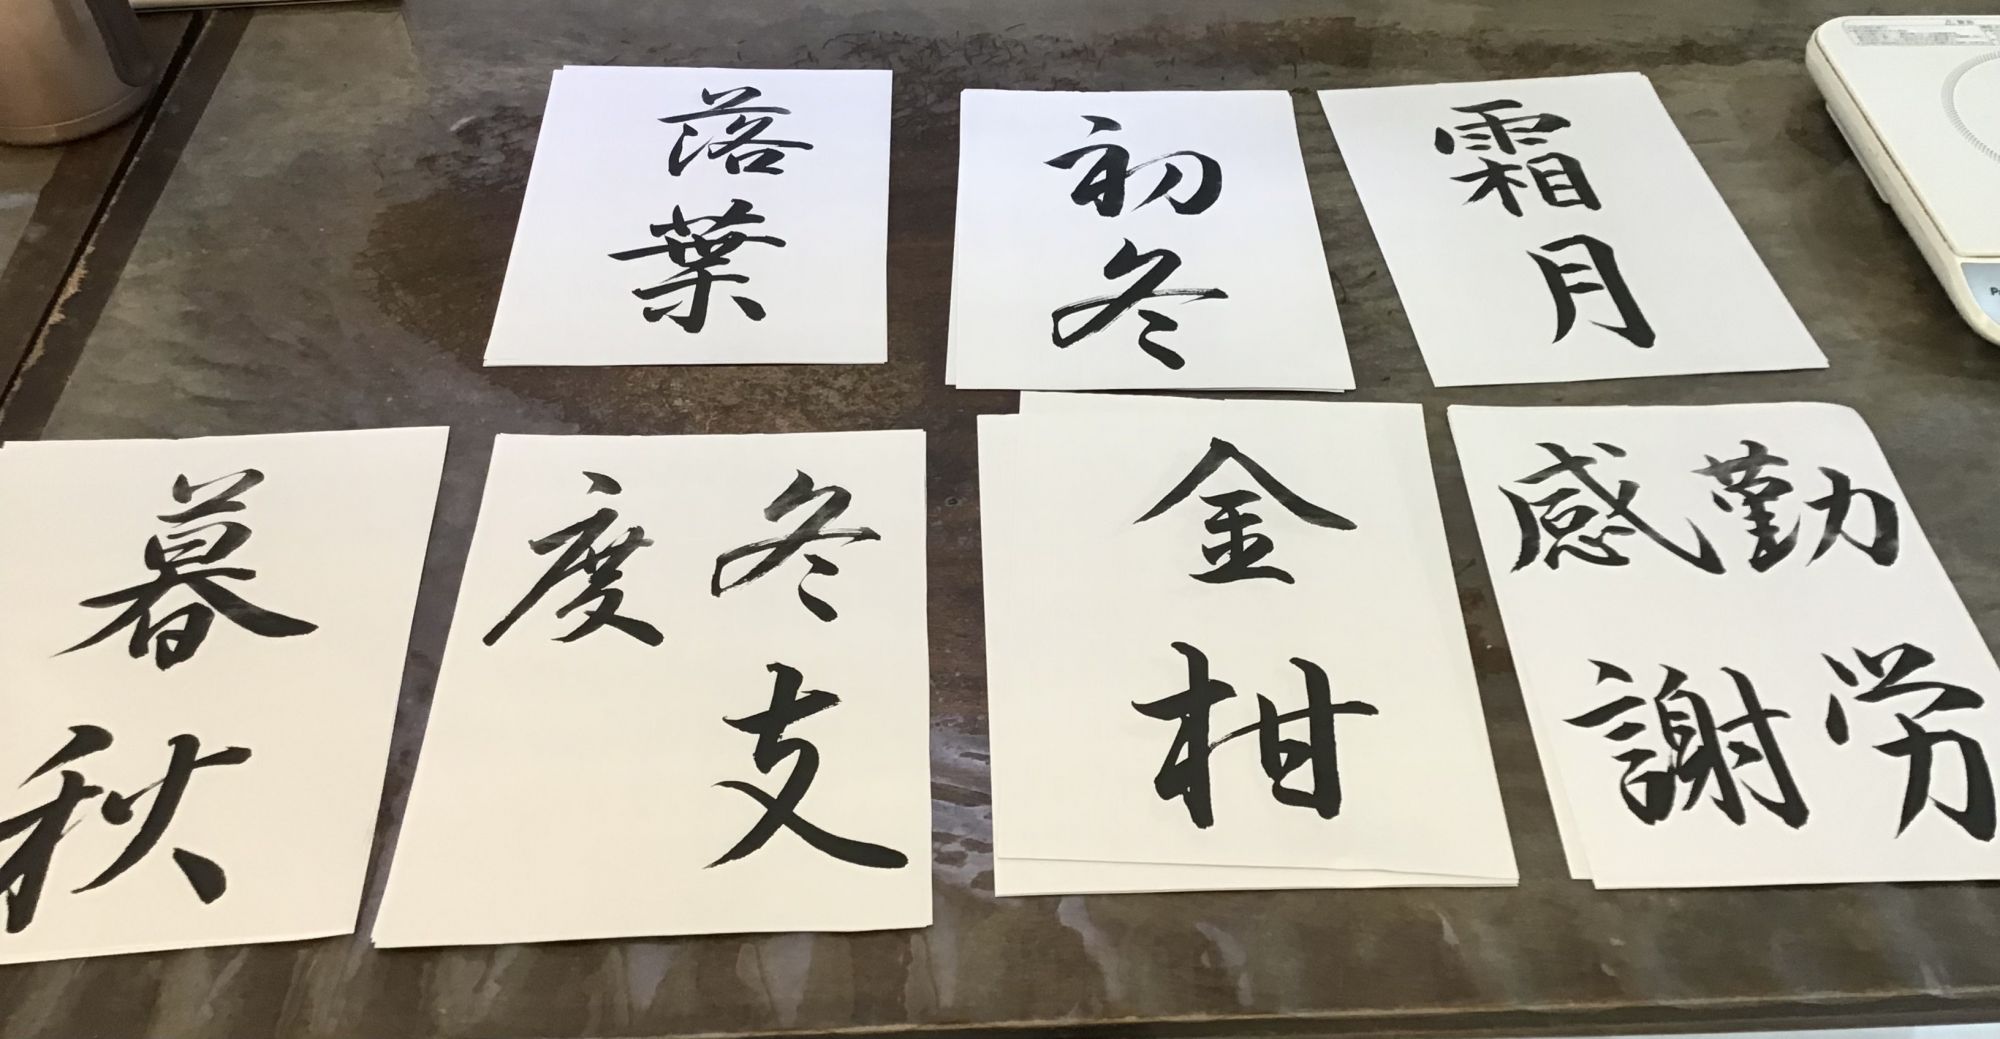 落葉
初冬
霜月
暮秋
冬支
度
金柑
勤労
感謝